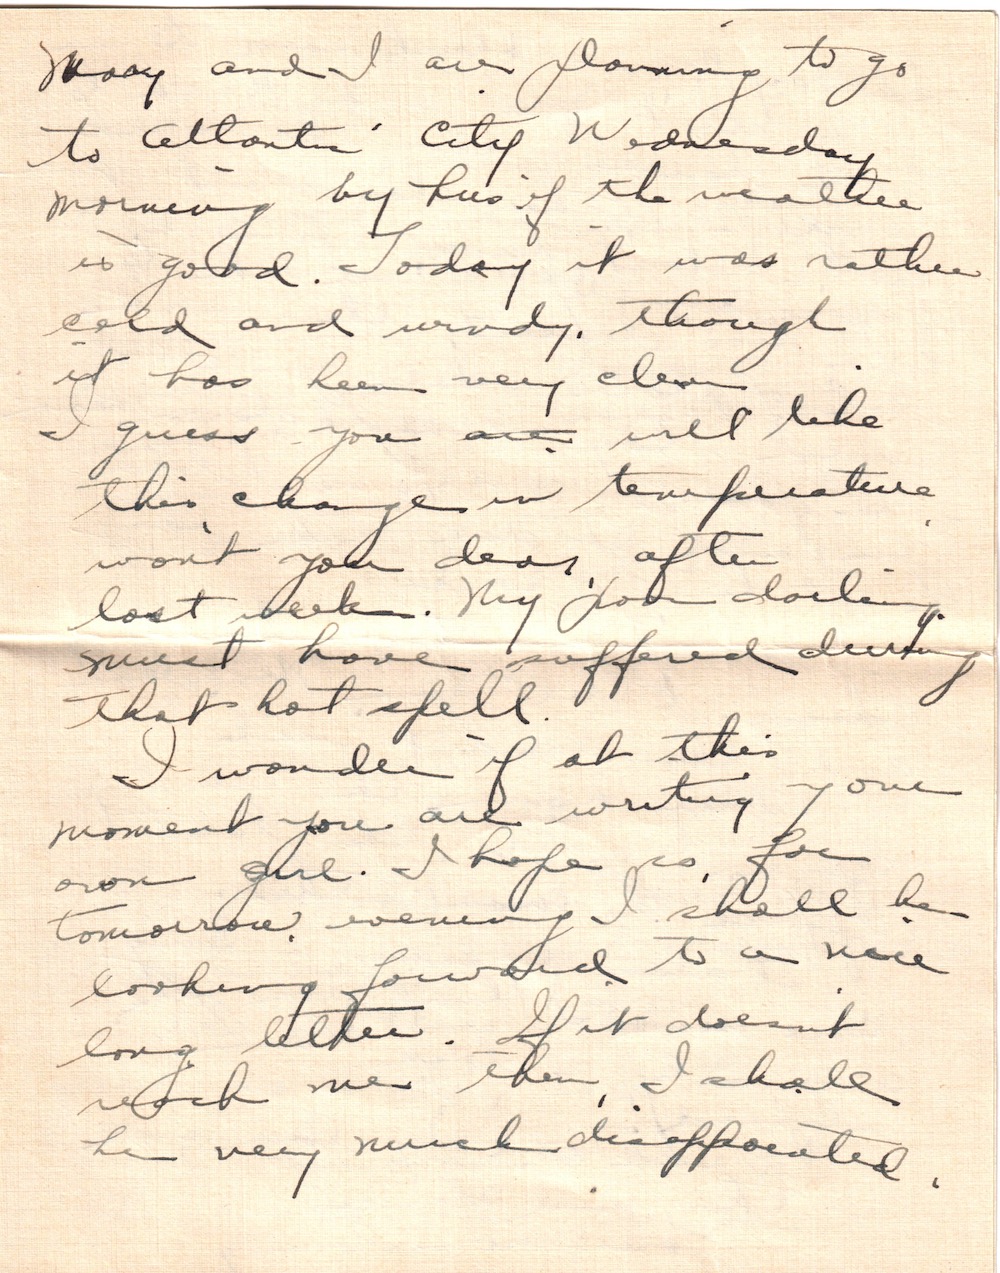 Mary and I are planning to go
to Atlantic City Wednesday
morning by bus if the weather
is good. Today it was rather
cold and windy, though
it has been very clear
I guess you are will like
this change in temperature
won't you dear, after
last week. My poor darling
must have suffered during
that hot spell.
I wonder if at this
moment you are writing your
own girl. I hope so, for
tomorrow evening I shall be
looking forward to a nice
long letter. If it doesn't
reach me then, I shall
be very much disappointed.